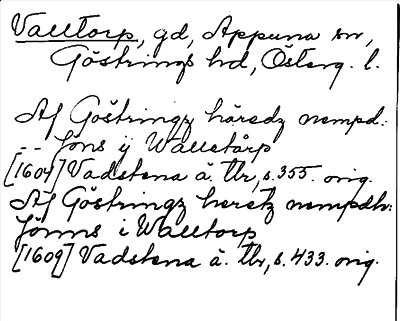 Valltorp, gd, Appuna sn,
Göstrings hd, Österg. l.
Af Göstringz häredz nempd:
-- Jöns ij Walletårp
[1604] Vadstena ä. tlr, s. 355. orig.
Af Göstringz heretz nempdh:
Jönns i Walltorp
[1609] Vadstena ä. tlr, s. 433. orig.